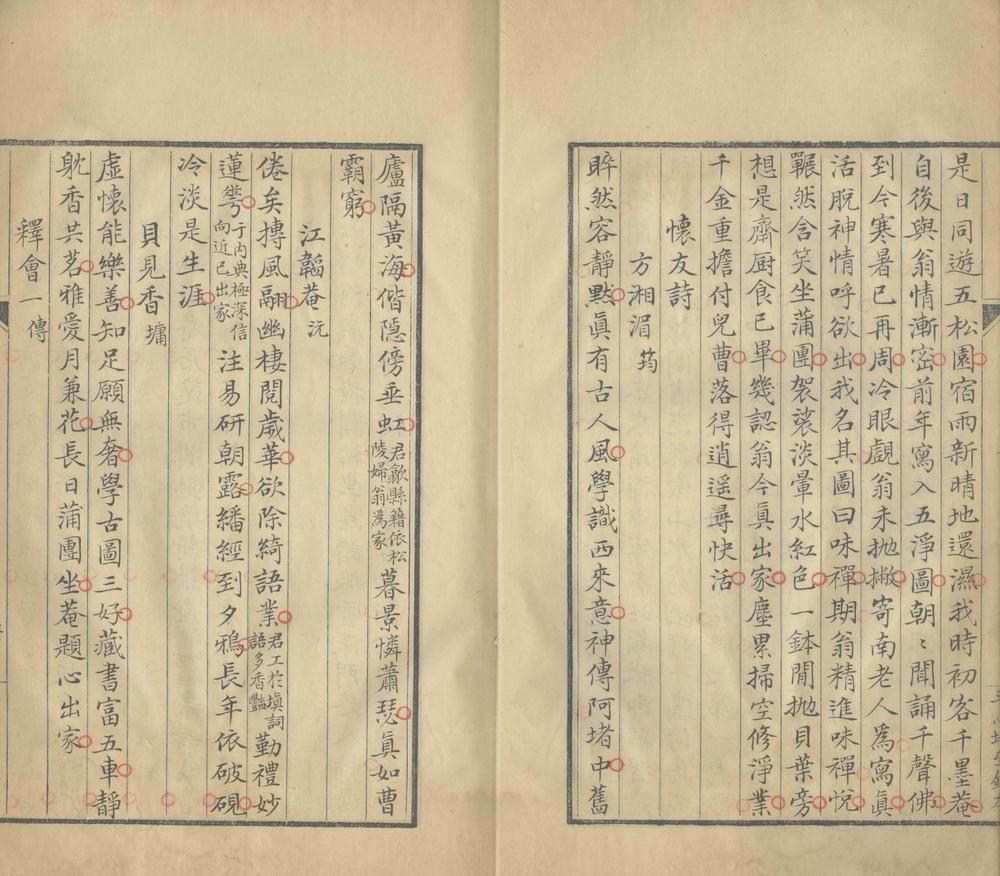 是日同遊五松園宿雨新晴地還濕我時初客千墨菴
自後與翁情漸密前年寫入五淨圖朝〻聞誦千聲佛
到今寒暑已再周冷眼覷翁未拋撇寄南老人為寫真
活脫神情呼欲出我名其圖曰味禪期翁精進味禪悅
囅然含笑坐蒲團袈裟淡暈水紅色一鉢閒拋貝葉旁
想是齋厨食已畢幾認翁今真出家塵累掃空修淨業
千金重擔付兒曹落得逍遥尋快活
懷友詩
方湘湄 筠
睟然容靜默真有古人風學識西來意神傳阿堵中舊
廬隔黃海偕隱傍垂虹君歙縣籍依松陵婦翁為家暮景憐蕭瑟真如曹
霸窮
江韜菴 沅
倦矣摶風翮幽棲閱歲華欲除綺語業君工於填詞語多香豔勤禮妙
蓮蕚于内典極深信向近已出家注易研朝露繙經到夕鴉長年依破硯
冷淡是生涯
貝見香 墉
虛懷能樂善知足願無奢學古圖三好藏書富五車靜
躭香共茗雅愛月兼花長日蒲團坐菴題心出家
釋會一 傳